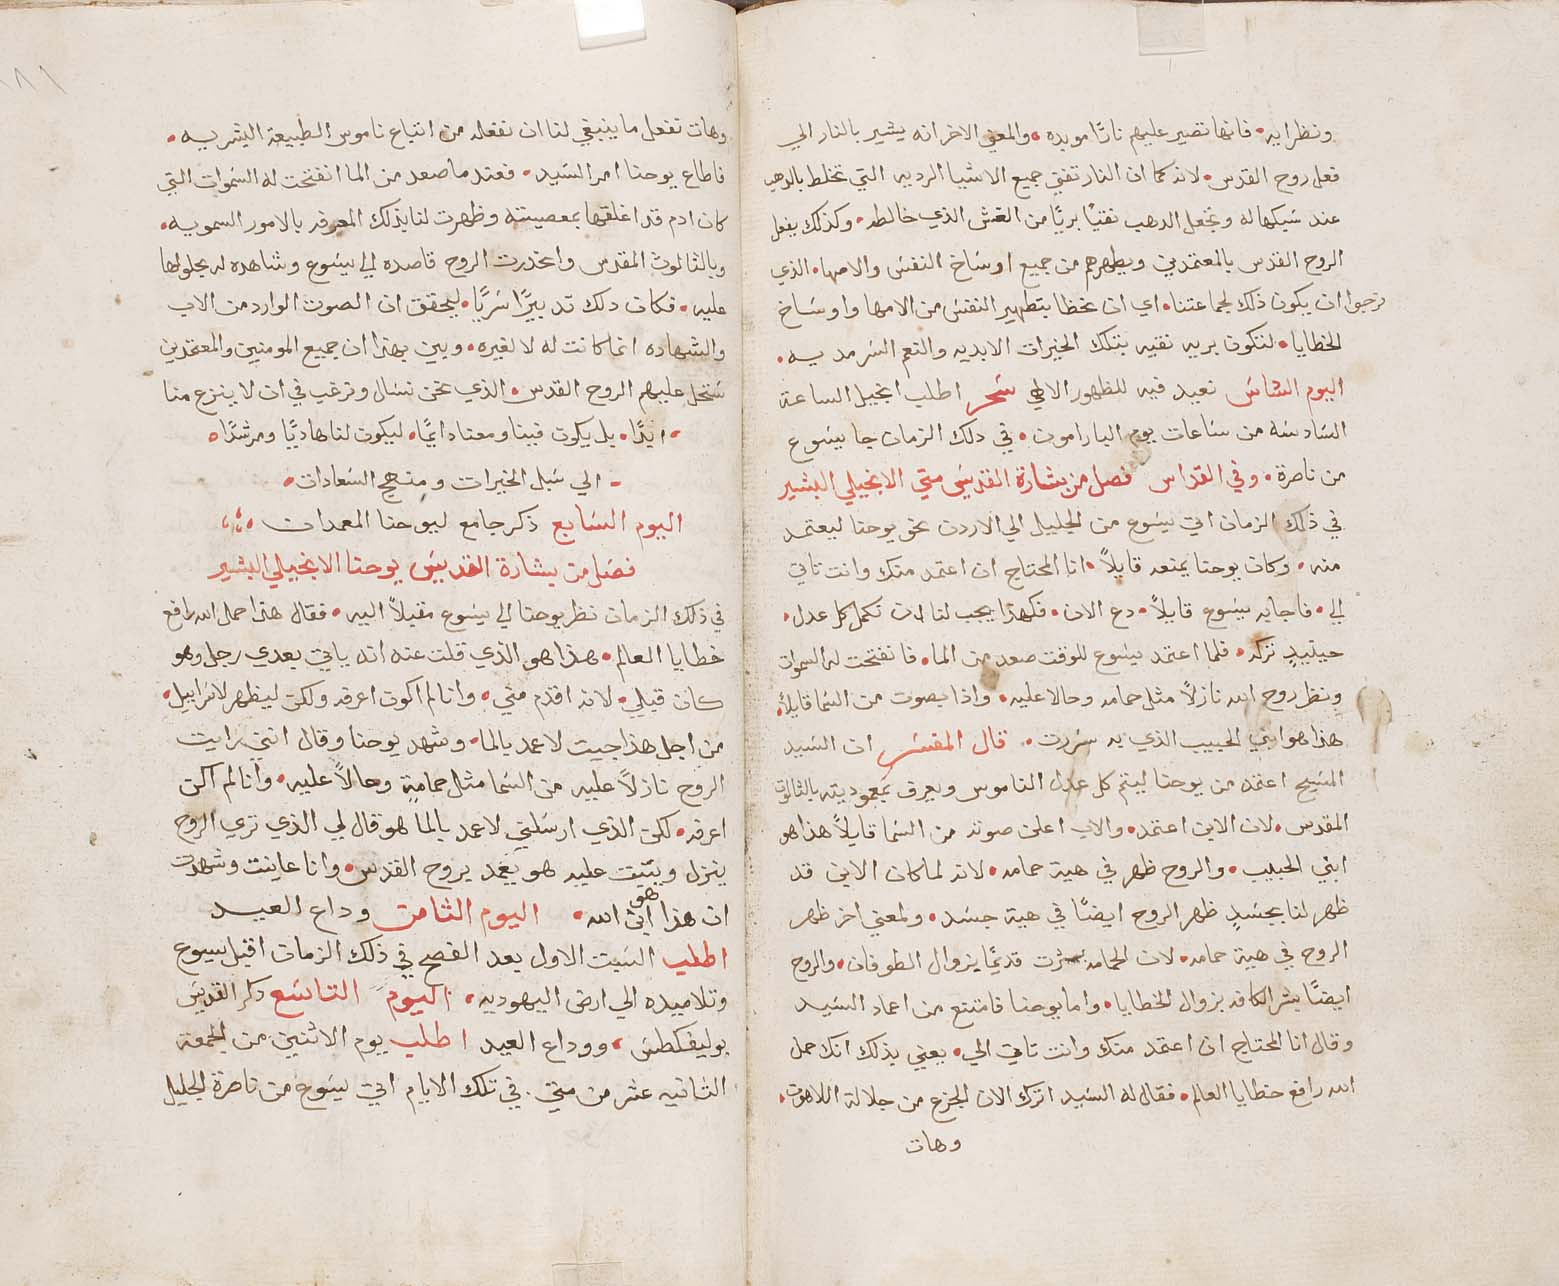 ونظرايه • فانها تصير عليهم نارًا موبده • والمعني الاخر انه يشير بالنار الي
فعل روح القدس • لانه كما ان النار تنقي جميع الاشيا الرديه التي تختلط بالدهب
عند سَبكها له وتجعل الدهب نقيًا بريًا من الغش الذي خالطه • وكذلك يفعل
الروح القدس بالمعتمدين ويطهرهم من جميع اوساخ النفس والامها • الذي
نرجوا ان يكون ذلك لجماعتنا • اي ان نحظا بتطهير النفس من الامها واوسَاخ
الخطايا • لنكون بريه نقيه بتلك الخيرات الابديه والنعم السرمديه •
اليوم السَّادس نعيد فيه للظهور الالهي سَحر اطلب انجيل الساعة
السَادسَه من سَاعات يوم البارامون • في دلك الزمان جا يسَوع
من ناصرة • وفي القداس فصل من بشارة القديسَ متي الانجيلي البشير
في ذلك الزمان اتي يسَوع من الجليل الي الاردن نحو يوحنا ليعتمد
منه • وكان يوحنا يمنعه قايلاً • انا المحتاج ان اعتمد منك وانت تاتي
الي • فاجابه يسَوع قايلاً • دع الان • فكهذا يجب لنا ان نكمل كل عدل •
حينيدٍ تركه • فلما اعتمد يسَوع للوقت صعد من الما • فانفتحت له السموات
ونظر روح الله نازلاً مثل حمامه وحالا عليه • واذا بصوت من السَما قايلاً •
هذا هو ابني الحبيب الذي به سررت • قال المفسَر ان السَيد
المسَيح اعتمد من يوحنا ليتم كل عدل الناموس ويعرف بمعموديته بالثالوث
المقدس • لان الابن اعتمد • والاب اعلن صوته من السَما قايلاً هذا هو
ابني الحبيب • والروح ظهر في هية حمامه • لانه لما كان الابن قد
ظهر لنا بجسَدٍ ظهر الروح ايضًا في هية جسَد • ولمعني اخر ظهر
الروح في هية حمامه • لان الحمامه بشرت قديمًا بزوال الطوفان • والروح
ايضًا بشر الكافه بزوال الخطايا • واما يوحنا فامتنع من اعماد السَيد
وقال انا المحتاج ان اعتمد منك وانت تاتي الي • يعني بذلك انك حمل
الله رافع خطايا العالم • فقال له السَيد اترك الان الجزع من جلالة اللاهوت •
وهات
وهات نفعل ما ينبغي لنا ان نفعله من اتباع ناموس الطبيعة البشريه •
فاطاع يوحنا امر السَيد • فعند ما صعد من الما انفتحت له السَموات التي
كان ادم قد اغلقها بمعصيته وظهرت لنا بذلك المعرفه بالامور السمويه •
وبالثالوث المقدس وانحدرت الروح قاصده الي يسَوع وشاهده له بحلولها
عليه • فكان دلك تدبيرًا سَريًا • ليحقق ان الصوت الوارد من الاب
والشهاده انما كانت له لا لغيره • وبين بهذا ان جميع المومنين والمعتمدين
سَتحل عليهم الروح القدس • الذي نحن نسَال ونرغب في ان لا ينزع منا
• ابدًا • بل يكون فينا ومعنا دايمًا • ليكون لنا هاديًا ومرشدًا •
- الي سَبل الخيرات ومنهج السَعادات •
اليوم السَابع ذكر جامع ليوحنا المعمدان •
فصَل من بشارة القديسَ يوحنا الانجيلي البشير
في ذلك الزمان نظر يوحنا الي يسَوع مقبلاً اليه • فقال هذا حمل الله رافع
خطايا العالم • هذا هو الذي قلت عنه انه ياتي بعدي رجل وهو
كان قبلي • لانه اقدم مني • وانا لم اكون اعرفه ولكن ليظهر لاسَراييل •
من اجل هذا جيت لاعمد بالما • وشهد يوحنا وقال انني رايت
الروح نازلاً عليه من السَما مثل حمامةٍ وحالاً عليه • وانا لم اكن
اعرفه • لكن الذي ارسَلني لاعمد بالما هو قال لي الذي تري الروح
ينزل ويثبت عليه هو يعمد بروح القدس • وانا عاينت وشهدت
ان هذا هو ابن الله • اليوم الثامن وداع العيد
اطلب السَبت الاول بعد الفصح في ذلك الزمان اقبل يسوع
وتلاميده الي ارض اليهوديه • اليوم التاسَع دكر القديسَ
بوليفكطسَ • ووداع العيد اطلب يوم الاثنين من الجمعة
الثانيه عشر من متي • في تلك الايام اتي يسَوع من ناصرة الجليل